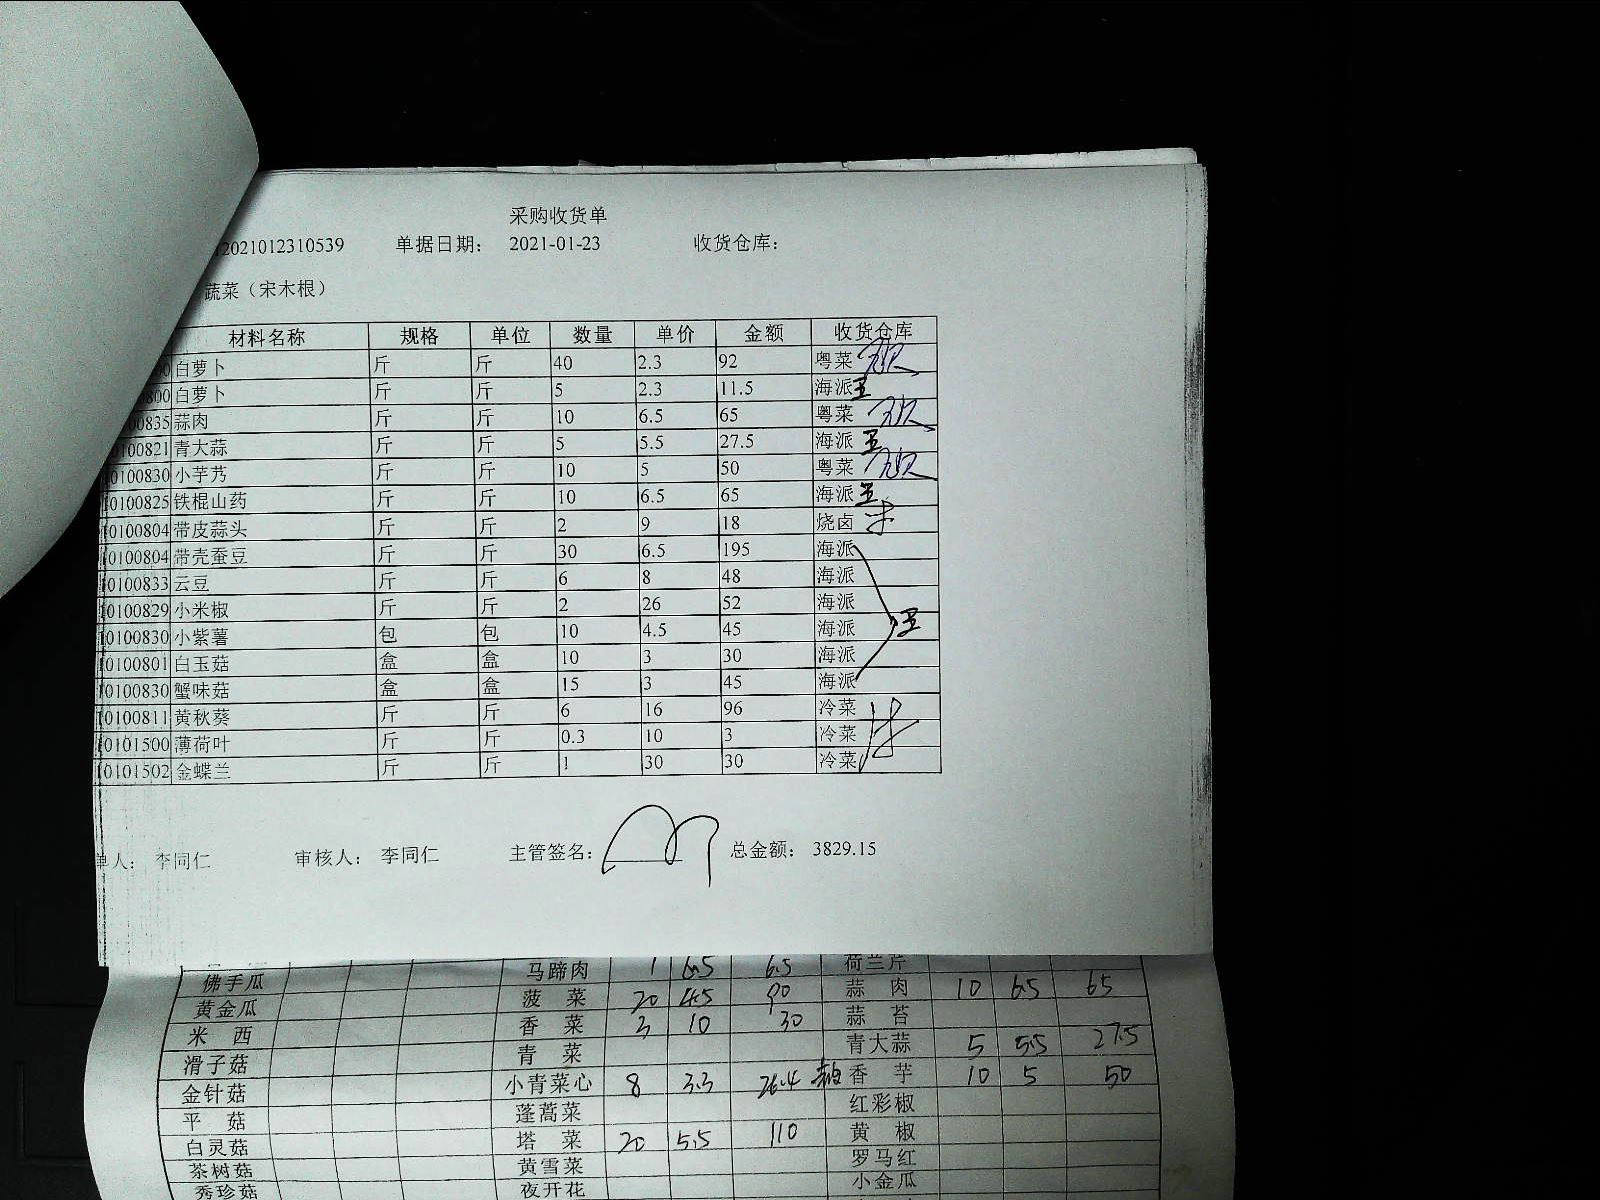 采购收货单
2021012310539 单据日期： 2021-01-23 收货仓库：
蔬菜（宋木根）
材料名称 规格 单位 数量 单价 金额 收货仓库
00 白萝卜 斤 斤 40 2.3 92 粤菜
0800 白萝卜 斤 斤 5 2.3 11.5 海派 王
00835 蒜肉 斤 斤 10 6.5 65 粤菜
0100821 青大蒜 斤 斤 5 5.5 27.5 海派 王
0100830 小芋艿 斤 斤 10 5 50 粤菜
10100825 铁棍山药 斤 斤 10 6.5 65 海派 王
10100804 带皮蒜头 斤 斤 2 9 18 烧卤
10100804 带壳蚕豆 斤 斤 30 6.5 195 海派
10100833 云豆 斤 斤 6 8 48 海派
10100829 小米椒 斤 斤 2 26 52 海派
10100830 小紫薯 包 包 10 4.5 45 海派 王
10100801 白玉菇 盒 盒 10 3 30 海派
10100830 蟹味菇 盒 盒 15 3 45 海派
10100811 黄秋葵 斤 斤 6 16 96 冷菜
10101500 薄荷叶 斤 斤 0.3 10 3 冷菜
10101502 金蝶兰 斤 斤 1 30 30 冷菜
单人： 李同仁 审核人： 李同仁 主管签名： 总金额： 3829.15
马蹄肉 1 6.5 6.5 荷兰芹
佛手瓜 菠菜 20 4.5 90 蒜肉 10 6.5 65
黄金瓜 香菜 3 10 30 蒜苔
米西 青菜 青大蒜 5 5.5 27.5
滑子菇 小青菜心 8 3.3 26.4 香芋 10 5 50
金针菇 蓬蒿菜 红彩椒
平菇 塔菜 20 5.5 110 黄椒
白灵菇 黄雪菜 罗马红
茶树菇 夜开花 小金瓜
秀珍菇